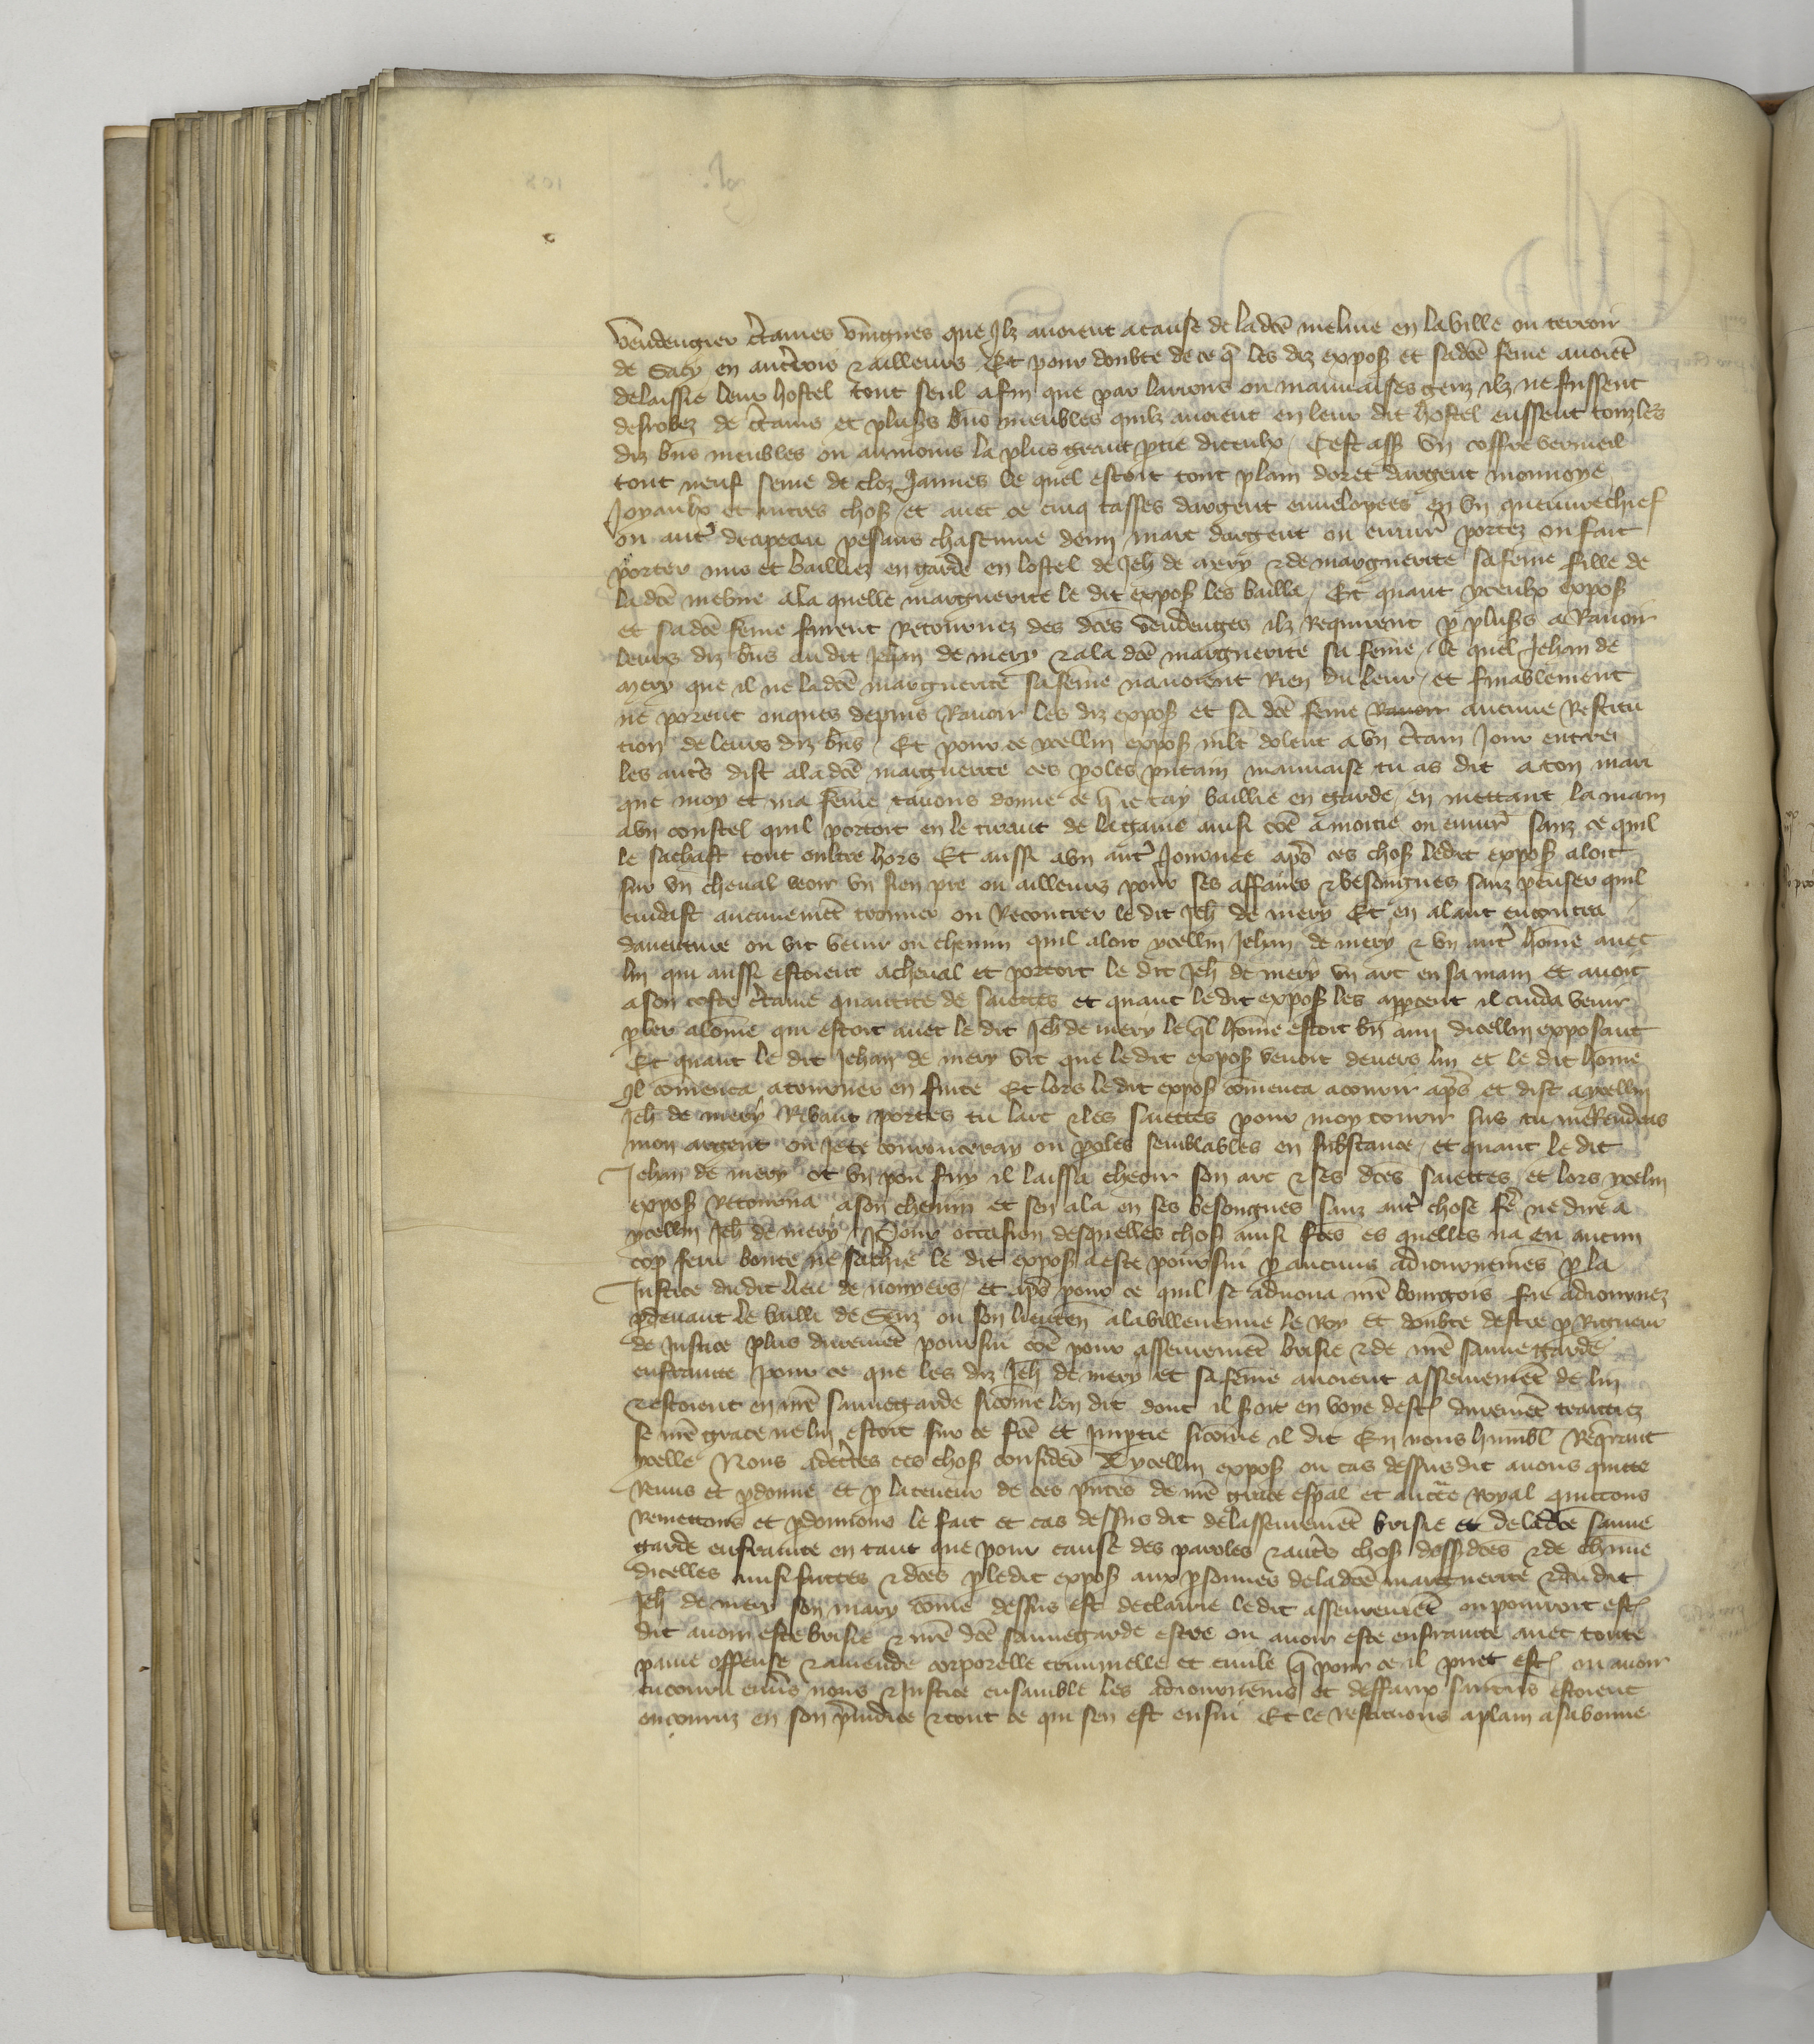 vendengier c̃taines vingnes que Ilz auoient acause de ladc̃e meline en laville ou terroir
de Sacy en aucerrois & ailleurs Et pour doubte de ce q̃ les diz expos̃ et sadc̃e fem̃e auoiẽt
delaissie leur hostel tout seul afin que par larrons ou mauuaises genz ilz ne fussent
desrobez de c̃tains et plus̃s biẽs meubles quilz auoient en leur dit hostel eussent touz les
diz biẽs meubles ou aumoins la plus grant p̃tie diceulx / Cest ass̃ vn coffre vermeil
tout neuf seme de cloz Jaunes le quel estoit tout plain dor et dargent monnoye
Joyaulx et autres chos̃ et auec ce cinq tasses dargent enuelopees en vn queuurechief
ou aut̃ drapeau pesans chascune demi marc dargent ou enuir̃ portez ou fait
porter mis et bailliez en garde en lostel de Jeh̃ de mery & de marguerite sa fem̃e fille de
ladc̃e meline ala quelle marguerite le dit expos̃ les bailla / Et quant yceulx expos̃
et sadc̃e fem̃e furent Retournez des dc̃es vendenges ilz Requirent p̃ plus̃s a Rauoir
leurs diz biẽs au dit Jehan de mery & ala dc̃e marguerite sa fem̃e / le quel Jehan de
mery que il ne ladc̃e marguerite sa fem̃e nauoient Rien du leur / et finablement
ne porent onques depuis Rauoir les diz expos̃ et sa dc̃e fem̃e Rauoir aucune Restitu
tion de leurs diz biẽs / Et pour ce ycellui expos̃ ml̃t dolent a vn c̃tain Jour entre
les aut̃s dist ala dc̃e marguerite ces p̃oles putain mauuaise tu as dit a ton mari
que moy et ma fem̃e tauons donne ce q̃ ie tay baillie en garde / en mettant la main
avn coustel quil portoit en le tirant de la gaine ainsi cõe a moitie ou enuir̃ sanz ce quil
le sachast tout oultre hors Et aussi avn aut̃ Journee ap̃s ces chos̃ ledit expos̃ aloit
sur vn cheual veoir vn sien pre ou ailleurs pour ses affaires & besongnes sanz penser quil
cuidast aucunemẽt trouuer ou Recontrer le dit Jeh̃ de mery Et en alant encontra
dauenture ou vit venir ou chemin quil aloit ycellui Jehan de mery & vn aut̃ hom̃e auec
lui qui aussi estoient acheual et portoit le dit Jeh̃ de mery vn arc en sa main et auoit
a son coste c̃taine quantite de saiettes et quant ledit expos̃ les apperceut il cuida venir
p̃ler alom̃e qui estoit auec le dit Jeh̃ de mery le q̃l hom̃e estoit vn ami dicellui exposant
Et quant le dit Jehan de mery vit que ledit expos̃ venoit deuers lui et le dit hom̃e
Il com̃enca atourner en fuite Et lors ledit expos̃ com̃enca acourir ap̃s et dist a ycellui
Jeh̃ de mery Ribaut portes tu larc & les saiettes pour moy courir sus tu me Rendras
mon argent ou Je te courouceray ou p̃oles semblables en substance / et quant le dit
Jehan de mery ot vn pou fuy il laissa cheoir son arc & ses dc̃es saiettes / et lors ycelui
expos̃ Retourna ason chemin et sen ala en ses besongnes sanz aut̃ chose fẽ ne dire a
ycellui Jeh̃ de mery / Pour occasion desquelles chos̃ ainsi fc̃es es quelles na eu aucun
cop feru boute ne sachie le dit expos̃ a este poursui p̃ aucuns adiournemẽs p̃ la
Justice dudit lieu de noyers / et ap̃s pour ce quil se aduoua nr̃e bourgois fu adiournez
p̃deuant le bailli de Senz ou son lieuteñ alavilleneuue le Roy et doubte destre p̃ Rigueur
de Justice plus duremẽt poursui cõe pour asseuremẽt brisie & de nr̃e sauuegarde
enfrainte pour ce que les diz Jeh̃ de mery et sa fem̃e auoient asseuremẽt de lui
& estoient en nr̃e sauuegarde sicom̃e len dit dont il s̃oit en voye dest̃ duremẽt traictiez
se nr̃e grace ne lui estoit sur ce fc̃e et Imp̃tie sicom̃e il dit En nous humbl̃ Req̃rant
ycelle Nous adecertes ces chos̃ considerẽ A ycellui expos̃ ou cas dessusdit auons quitte
Remis et p̃donne et p̃ la teneur de ces p̃ntes de nr̃e grace esp̃al et auct̃e Royal quittons
Remettons et p̃donnons le fait et cas dessus dit delasseuremẽt brisie et deladc̃e sauue
garde enfrainte en tant que pour cause des paroles & aut̃s chos̃ dess̃dc̃es & de chũne
dicelles ainsi faictes & dc̃es p̃ ledit expos̃ aux p̃sonnes deladc̃e marguerite & dudit
Jeh̃ de mery son mary com̃e dessus est declairie ledit asseuremẽt en pourroit est̃
dit auoir este brisie & nr̃e dc̃e sauuegarde estre ou auoir este enfrainte auec toute
paine offense & amende corporelle criminelle et ciuile q̃ pour ce il puet est̃ ou auoir
encouru enu̾s nous & Justice ensamble les adiournemẽs et deffaux s aucuns estoient
encouruz en son p̃iudice & tout ce qui sen est ensui Et le Restituons aplain asabonne